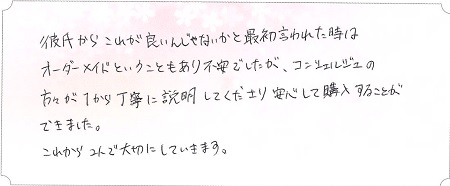 彼氏からこれが良いんじゃないかと最初言われた時は
オーダーメイドということもあり不安でしたが、コンシェルジュの
方々が1から丁寧に説明してくださり安心して購入することが
できました。
これから2人で大切にしていきます。